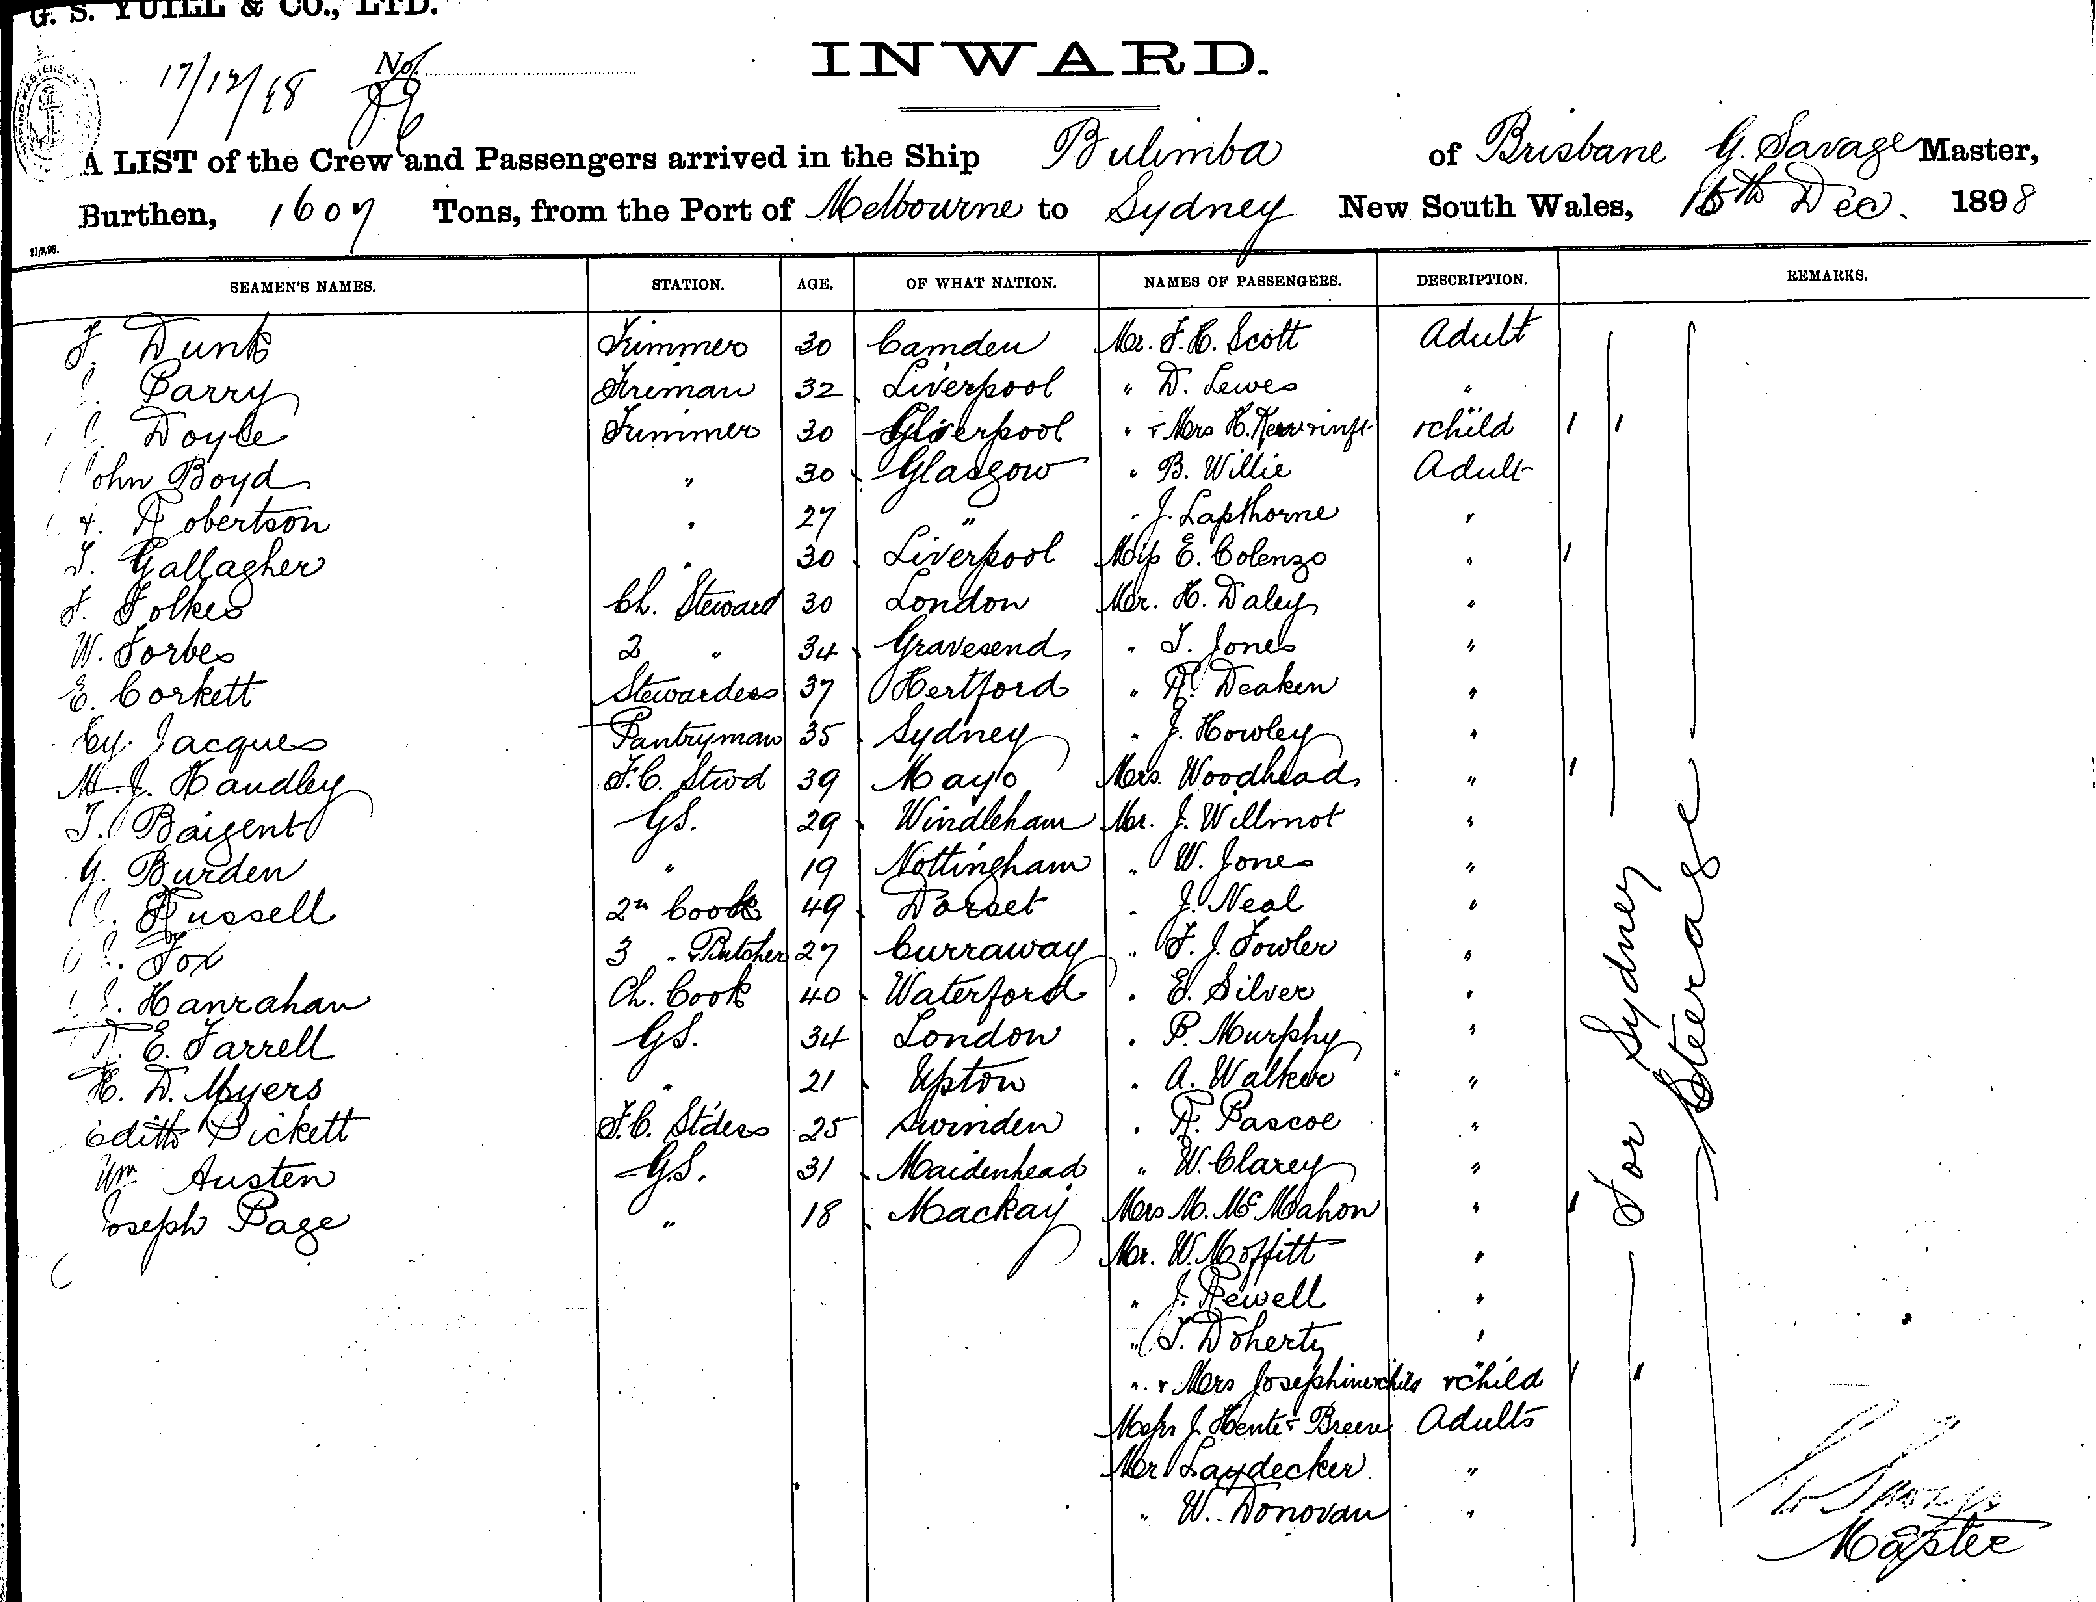 G. S. YUILL & CO., LTD.
17/12/98 No.
INWARD.
A LIST of the Crew and Passengers arrived in the Ship Bulimba of Brisbane G. Savage Master,
Burthen, 1607 Tons, from the Port of Melbourne to Sydney New South Wales, 16th Dec. 1898
SEAMEN'S NAMES. STATION. AGE. OF WHAT NATION. NAMES OF PASSENGERS. DESCRIPTION. REMARKS.
J. Dunk Trimmer 30 Camden Mr. F. H. Scott Adult
Parry Fireman 32 Liverpool " D. Lewes "
Doyle Trimmer 30 Liverpool " & Mrs H. & child
John Boyd " 30 Glasgow " B. Willie Adult
Robertson " 27 " " J. Lapthorne "
T. Gallagher " 30 Liverpool Miss E. Colenzo "
F. Folkes Ch. Steward 30 London Mr. H. Daley "
W. Forbes 2 " 34 Gravesend " T. Jones "
E. Corkett Stewardess 37 Hertford " R. Deaken "
Hy. Jacques Pantryman 35 Sydney " J. Howley "
M. J. Handley F.C. Stwd 39 Mayo Mrs. Woodhead "
T. Baigent G.S. 29 Windleham Mr. J. Willmot "
G. Burden " 19 Nottingham " W. Jones "
Russell 2n Cook 49 Dorset " J. Neal "
Fox 3 " Butcher 27 Curraway " F. J. Fowler "
Hanrahan Ch. Cook 40 Waterford " E. Silver "
R. E. Farrell G.S. 34 London " P. Murphy "
H. D. Myers " 21 Upton " A. Walker "
Edith Pickett F.C. St'dess 25 Swinden " R. Pascoe "
Wm Austen G.S. 31 Maidenhead " W. Clarey "
Joseph Page " 18 Mackay Mrs M. McMahon "
Mr. W. Moffitt "
" J. Rewell "
" T. Doherty "
" & Mrs Josephine & child & child
Messrs J. Hente & Breen Adults
Mr Laydecker "
" W. Donovan "
For Sydney
Steerage
G. Savage
Master